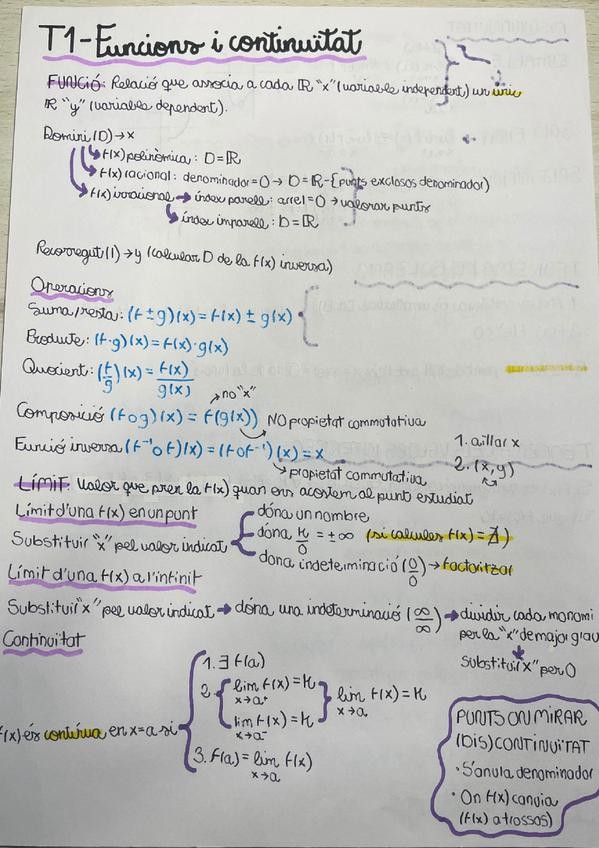 T1-Funcions i continuïtat
FUNCIÓ: Relació que associa a cada ℝ "x" (variable independent) un únic
ℝ "y" (variable dependent).
Domini (D) → x
f(x) polinòmica: D=ℝ
f(x) racional: denominador=0 → D=ℝ-{punts exclosos denominador}
f(x) irracional → índex parell: arrel=0 → valorar punts
índex imparell: D=ℝ
Recorregut (I) → y (calcular D de la f(x) inversa)
Operacions
Suma/resta: (f ± g)(x) = f(x) ± g(x)
Producte: (f·g)(x) = f(x)·g(x)
Quocient: (f/g)(x) = f(x)/g(x)
→ no "x"
Composició (f o g)(x) = f(g(x)) NO propietat commutativa
Funció inversa (f⁻¹ o f)(x) = (f o f⁻¹)(x) = x
→ propietat commutativa
1. aïllar x
2. (x,y)
LÍMIT: Valor que pren la f(x) quan ens acostem al punt estudiat
Límit d'una f(x) en un punt
Substituir "x" pel valor indicat
dóna un nombre
dóna K/0 = ±∞ (si calcules f(x) = ∄)
dona indeterminació (0/0) → factoritzar
Límit d'una f(x) a l'infinit
Substituir "x" pel valor indicat → dóna una indeterminació (∞/∞) → dividir cada monomi
per la "x" de major grau
Substituir "x" per 0
Continuïtat
f(x) és contínua en x=a si
1. ∃ f(a)
2. lim f(x) = K
x→a⁺
lim f(x) = K
x→a⁻
lim f(x) = K
x→a
3. f(a) = lim f(x)
x→a
PUNTS ON MIRAR
(DIS)CONTINUÏTAT
· S'anula denominador
· On f(x) canvia
(f(x) a trossos)